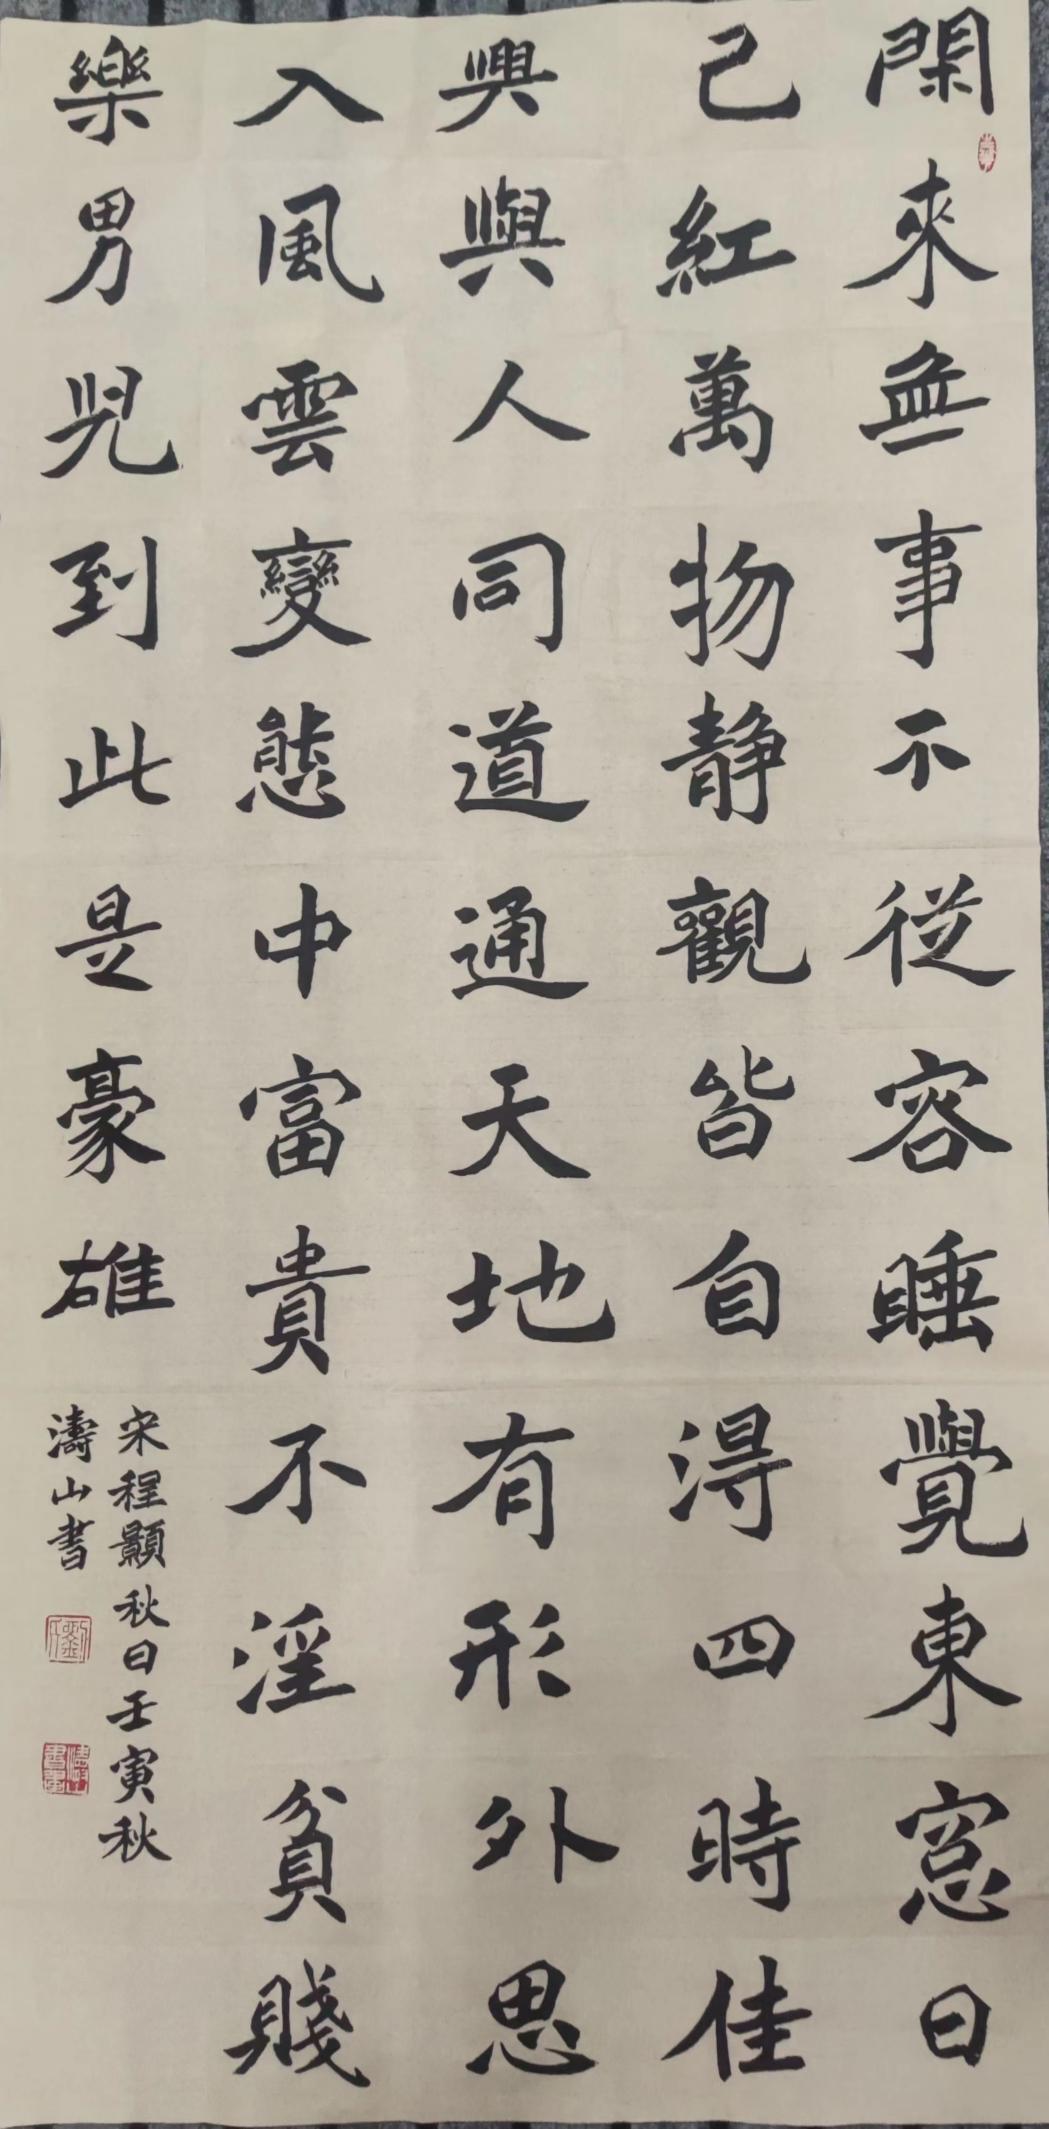 閑來無事不從容睡覺東窓日
已紅萬物靜觀皆自得四時佳
興與人同道通天地有形外思
入風雲變態中富貴不淫貧賤
樂男兒到此是豪雄
宋程顥秋日壬寅秋
濤山書